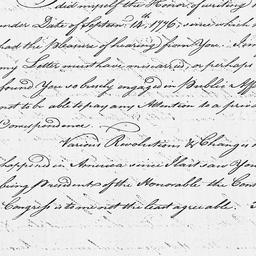 I did myself the Honor of writing
under Date of Septem. 14th 1776, since which
had the pleasure of hearing from You.
my Letter must have miscarried, or perhaps
found You so busely engaged in Publick Aff
not to be able to pay any Attention to a priv
Correspondence.
Various Revolutions & Changes
happen'd in America since I last saw You
being President of the Honorable the Con
Congress is to me not the least agreable.